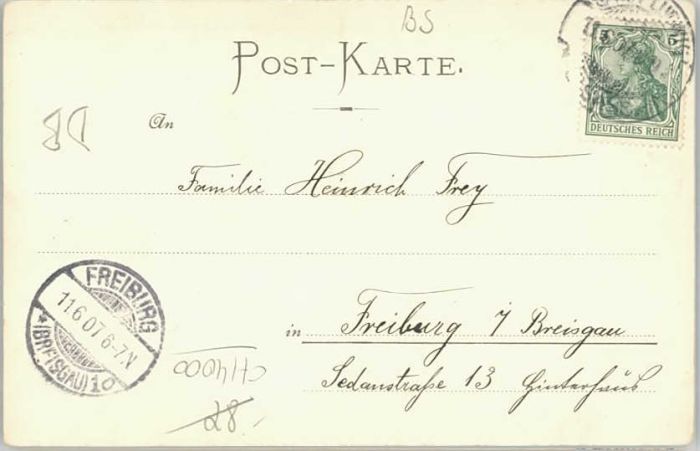 BS
POST-KARTE.
5 5
DEUTSCHES REICH
An
Familie Heinrich Frey
FREIBURG
11.6.07.6-7.N
*(BREISGAU)10
in Freiburg i/ Breisgau
Sedanstraße 13 Hinterhaus
28.-